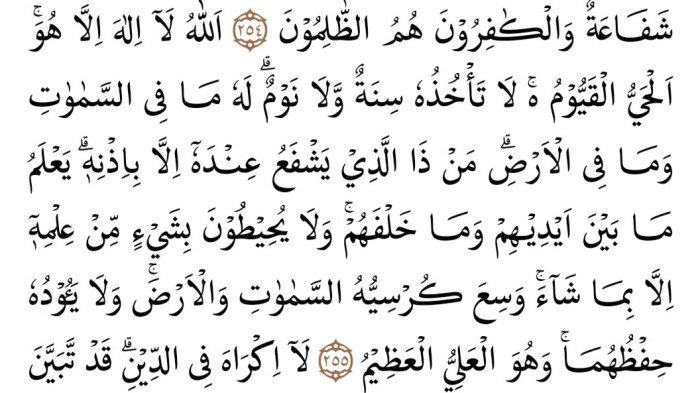 شَفَاعَةٌ وَالْكٰفِرُوْنَ هُمُ الظّٰلِمُوْنَ ﴿٢٥٤﴾ اَللّٰهُ لَآ اِلٰهَ اِلَّا هُوَۚ
اَلْحَيُّ الْقَيُّوْمُ ەۚ لَا تَأْخُذُهٗ سِنَةٌ وَّلَا نَوْمٌؕ لَهٗ مَا فِى السَّمٰوٰتِ
وَمَا فِى الْاَرْضِؕ مَنْ ذَا الَّذِيْ يَشْفَعُ عِنْدَهٗٓ اِلَّا بِاِذْنِهٖؕ يَعْلَمُ
مَا بَيْنَ اَيْدِيْهِمْ وَمَا خَلْفَهُمْۚ وَلَا يُحِيْطُوْنَ بِشَيْءٍ مِّنْ عِلْمِهٖٓ
اِلَّا بِمَا شَآءَۚ وَسِعَ كُرْسِيُّهُ السَّمٰوٰتِ وَالْاَرْضَۚ وَلَا يَـُٔوْدُهٗ
حِفْظُهُمَاۚ وَهُوَ الْعَلِيُّ الْعَظِيْمُ ﴿٢٥٥﴾ لَآ اِكْرَاهَ فِى الدِّيْنِۗ قَدْ تَّبَيَّنَ